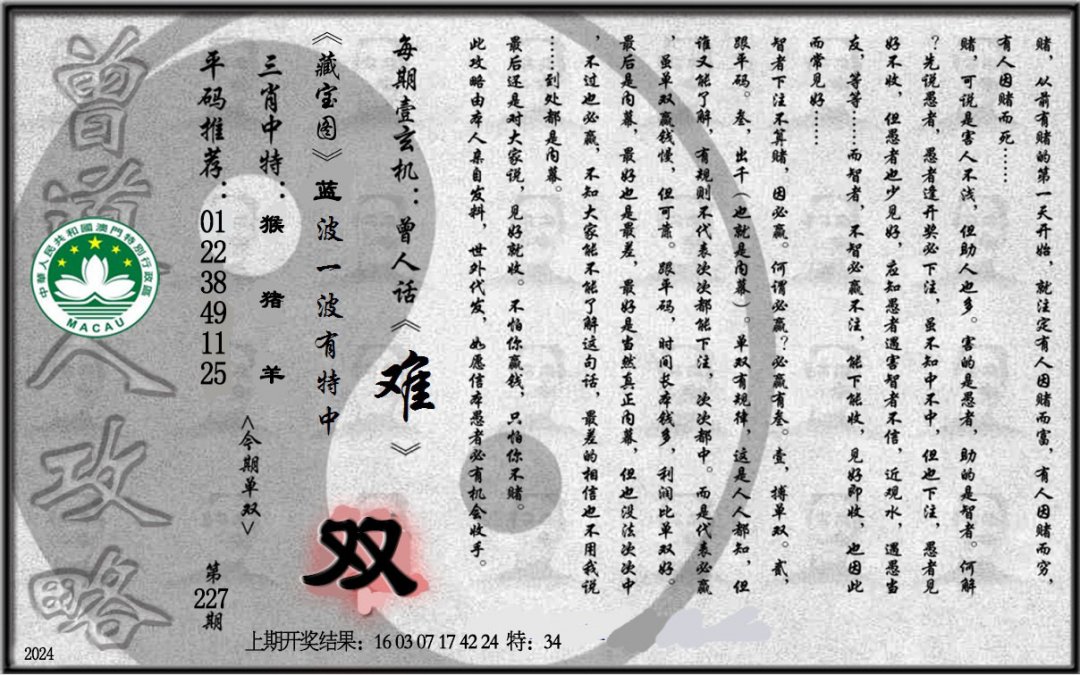 赌，从前有赌的第一天开始，就注定有人因赌而富，有人因赌而穷，
有人因赌而死……
赌，可说是害人不浅，但助人也多。害的是愚者，助的是智者。何解
？先说愚者，愚者逢开奖必下注，虽不知中不中，但也下注，愚者见
好不收，但愚者也少见好，应知愚者遇害智者不信，近观水，遇愚当
友，等等……而智者，不智必赢不注，能下能收，见好即收，也因此
而常见好……
智者下注不算赌，因必赢。何谓必赢？必赢有叁。壹，搏单双。贰，
跟平码。叁，出千（也就是内幕）。单双有规律，这是人人都知，但
谁又能了解，有规则不代表次次都能下注，次次都中。而是代表必赢
，虽单双赢钱慢，但可靠。跟平码，时间长本钱多，利润比单双好。
最后是内幕，最好也是最差，最好是当然真正内幕，但也没法次次中
，不过也必赢，不知大家能不能了解这句话，最差的相信也不用我说
……到处都是内幕。
最后还是对大家说，见好就收。不怕你赢钱，只怕你不赌。
此攻略由本人亲自发料，世外代发，如愿信本愚者必有机会收手。
每期壹玄机：曾人话《难》
《藏宝图》蓝波一波有特中
双
三肖中特：猴 猪 羊
<今期单双>
平码推荐：01 22 38 49 11 25
第227期
曾道人攻略
中華人民共和國澳門特別行政區
MACAU
上期开奖结果：16 03 07 17 42 24 特：34
2024